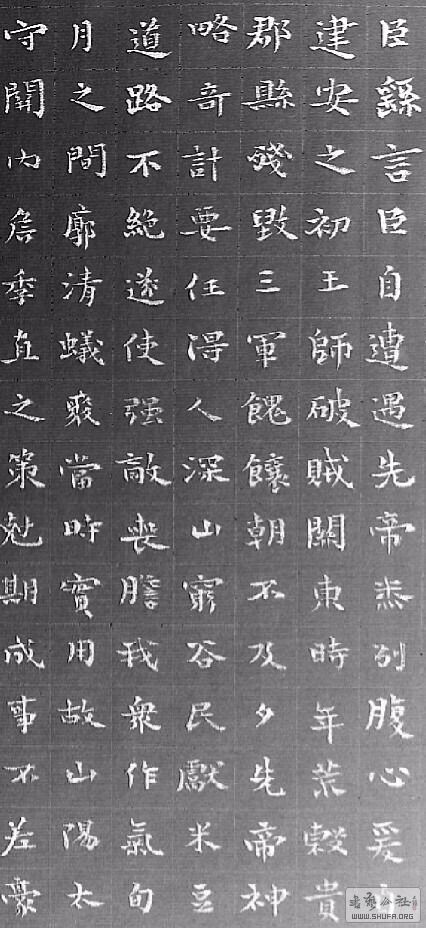 臣繇言臣自遭遇先帝忝列腹心爰自
建安之初王師破賊關東時年荒穀貴
郡縣殘毀三軍餽饟朝不及夕先帝神
略奇計委任得人深山窮谷民獻米豆
道路不絕遂使强敵喪膽我衆作氣旬
月之間廓清蟻聚當時實用故山陽太
守關內侯季直之策尅期成事不差豪
书艺公社
WWW.SHUFA.ORG